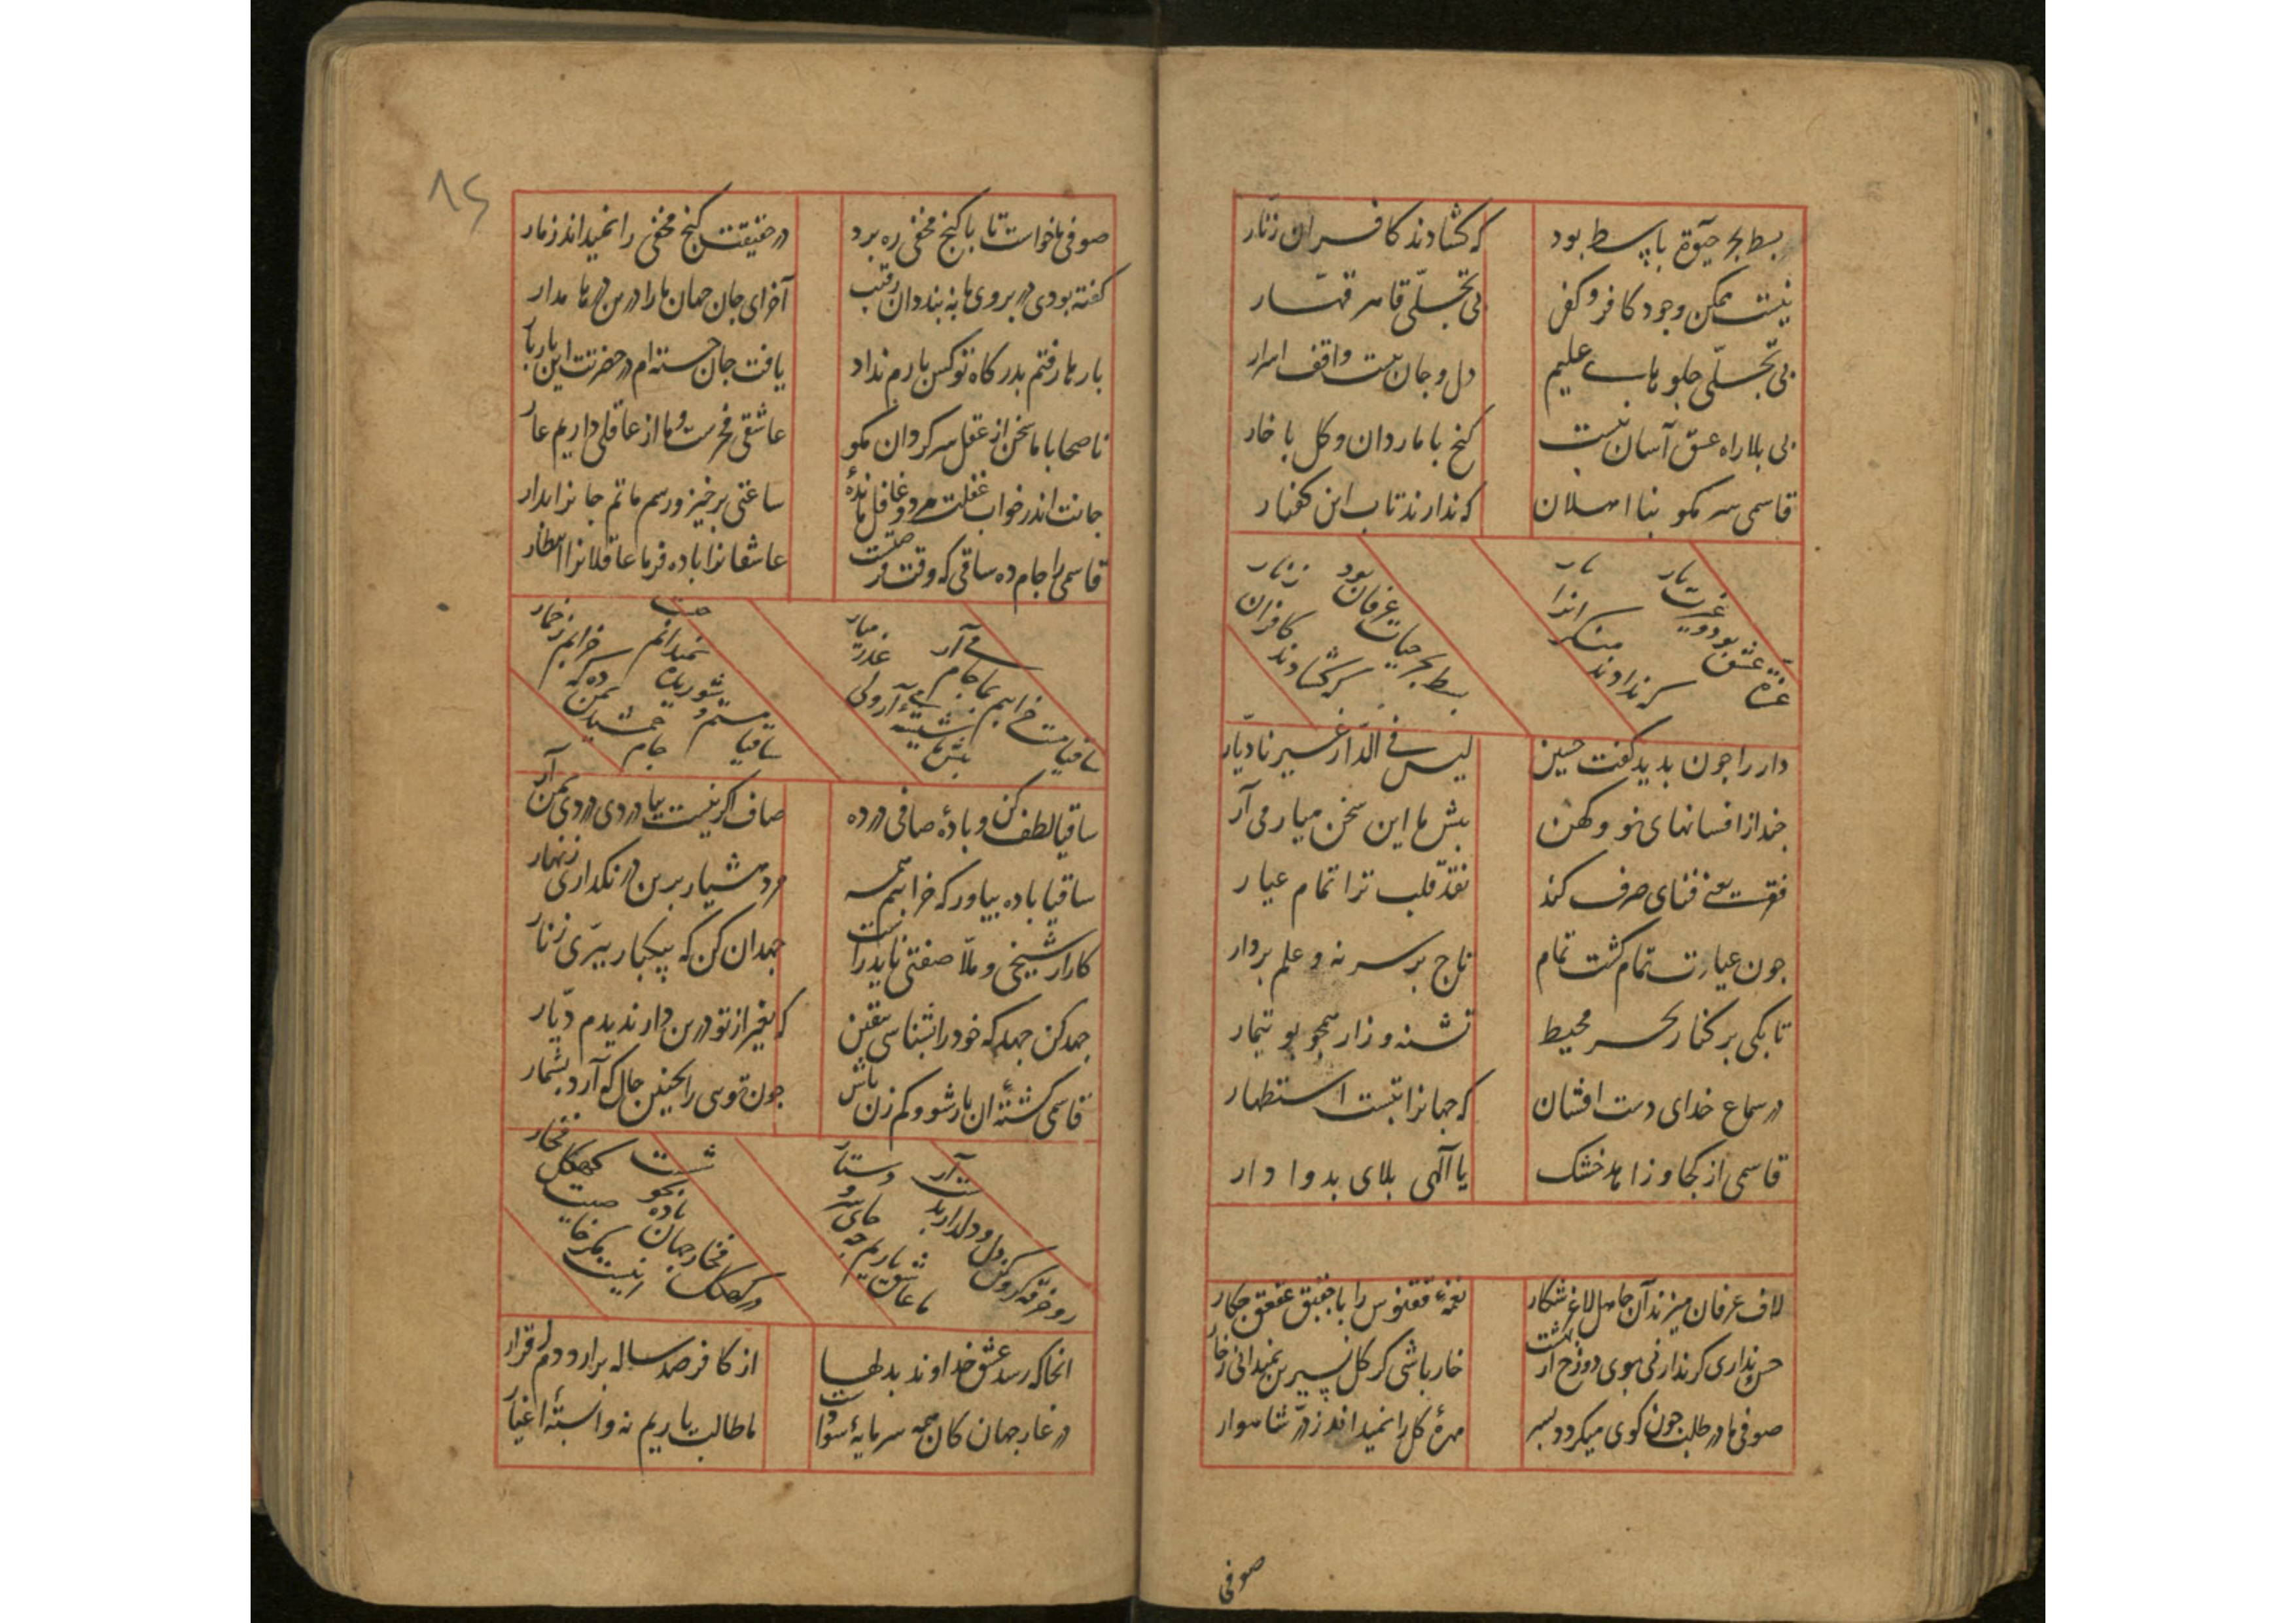 بسط بحر حیوة با پسط بود
که کشادند کافران زنّار
نیست ممکن وجود کافر و کفر
بی تجلّی قاهر قهّار
بی تجلّی جلوهاب علیم
دل و جان نیست واقف اسرار
بی بلا راه عشق آسان نیست
کنج با مار دان و کل با خار
قاسمی سر مکو بنا اهلان
که ندارند تاب این کفتار
عزة عشق بود و غیرت یار
که ندادند منکر انرا بار
بسط بحر حیات عرفان بود
که کشادند کافران زنار
دار را جون بدید کفت حسین
لیس فی الدّار غیرنا دیّار
جند از افسانهای نو و کهن
پیش ما این سخن میار می آر
فقرت یعنی فنای صرف کند
نقد قلب ترا تمام عیار
جون عیارت تمام کشت تمام
تاج بر سر نه و علم بردار
تا بکی بر کنار بحر محیط
تشنه و زار همجو بوتیمار
در سماع خدای دست افشان
که جهانرا بتست استظهار
قاسمی از کجا و زاهد خشک
یا آلهی بلای بد وا دار
لاف عرفان میزند آن جاهل لاغر شکار
نغمهٔ ققنوس را با جقبق عقعق جکار
حس نداری کر نداری بوی دوزخ از بهشت
خار باشی کر کل نسرین نمیدانی ز خار
صوفی ما در طلب جون کوی میکردد بسر
مهرهٔ کل را نمیداند ز درّ شاهوار
صوفی
۸۴
صوفی ما خواست تا با کنج مخفی ره برد
در حقیقت کنج مخفی را نمیداند ز مار
کفته بودی در بروی ما نه بندد آن رقیب
آخر ای جان جهان ما را درین در پا مدار
بارها رفتم بدرکاه تو کس بارم نداد
یافت جان خسته ام در حضرتت این بار بار
ناصحا با ما سخن از عقل سرکردان مکو
عاشقی فخرست و ما از عاقلی داریم عار
جانت اندر خواب غفلت مرد و غافل ماندهٔ
ساعتی برخیز و رسم ماتم جانرا بدار
قاسمی را جام ده ساقی که وقت فرصتست
عاشقانرا باده فرما عاقلانرا انتظار
ساقیا مست خرابیم بما جام می آر
پیش ما شیشهٔ می آر ولی عذر میار
ساقیا مستم و شوریده نمیدانم جیست
جام جمشید بمن ده که خرابم ز خمار
ساقیا لطف کن و بادهٔ صافی در ده
صاف اکر نیست بیا دردی دردی بمن آر
ساقیا باده بیاور که خرابیم همه
مرد هشیار برین در نکذاری زنهار
کار از شیخی و ملّا صفتی ناید راست
جهد آن کن که بیکبار ببرّی زنار
جهد کن جهد که خود را بشناسی بیقین
که بغیر از تو درین دار ندیدم دیّار
قاسمی کشتهٔ آن یار شو و کم زن باش
جون توسی را بجنین حال که آرد بشمار
رو خرقه کرو کن دل و دلدار بدست آر
ما عاشق یاریم جه جای سر و دستار
در کهکل فخار جهان باده بجوشست
انیست مکر خاصیت کهکل فخار
انجا که رسد عشق خداوند بدلها
از کافر صد ساله برارد دم اقرار
در غار جهان کان همه سرمایهٔ سوداست
ما طالب یاریم نه وابستهٔ اغیار